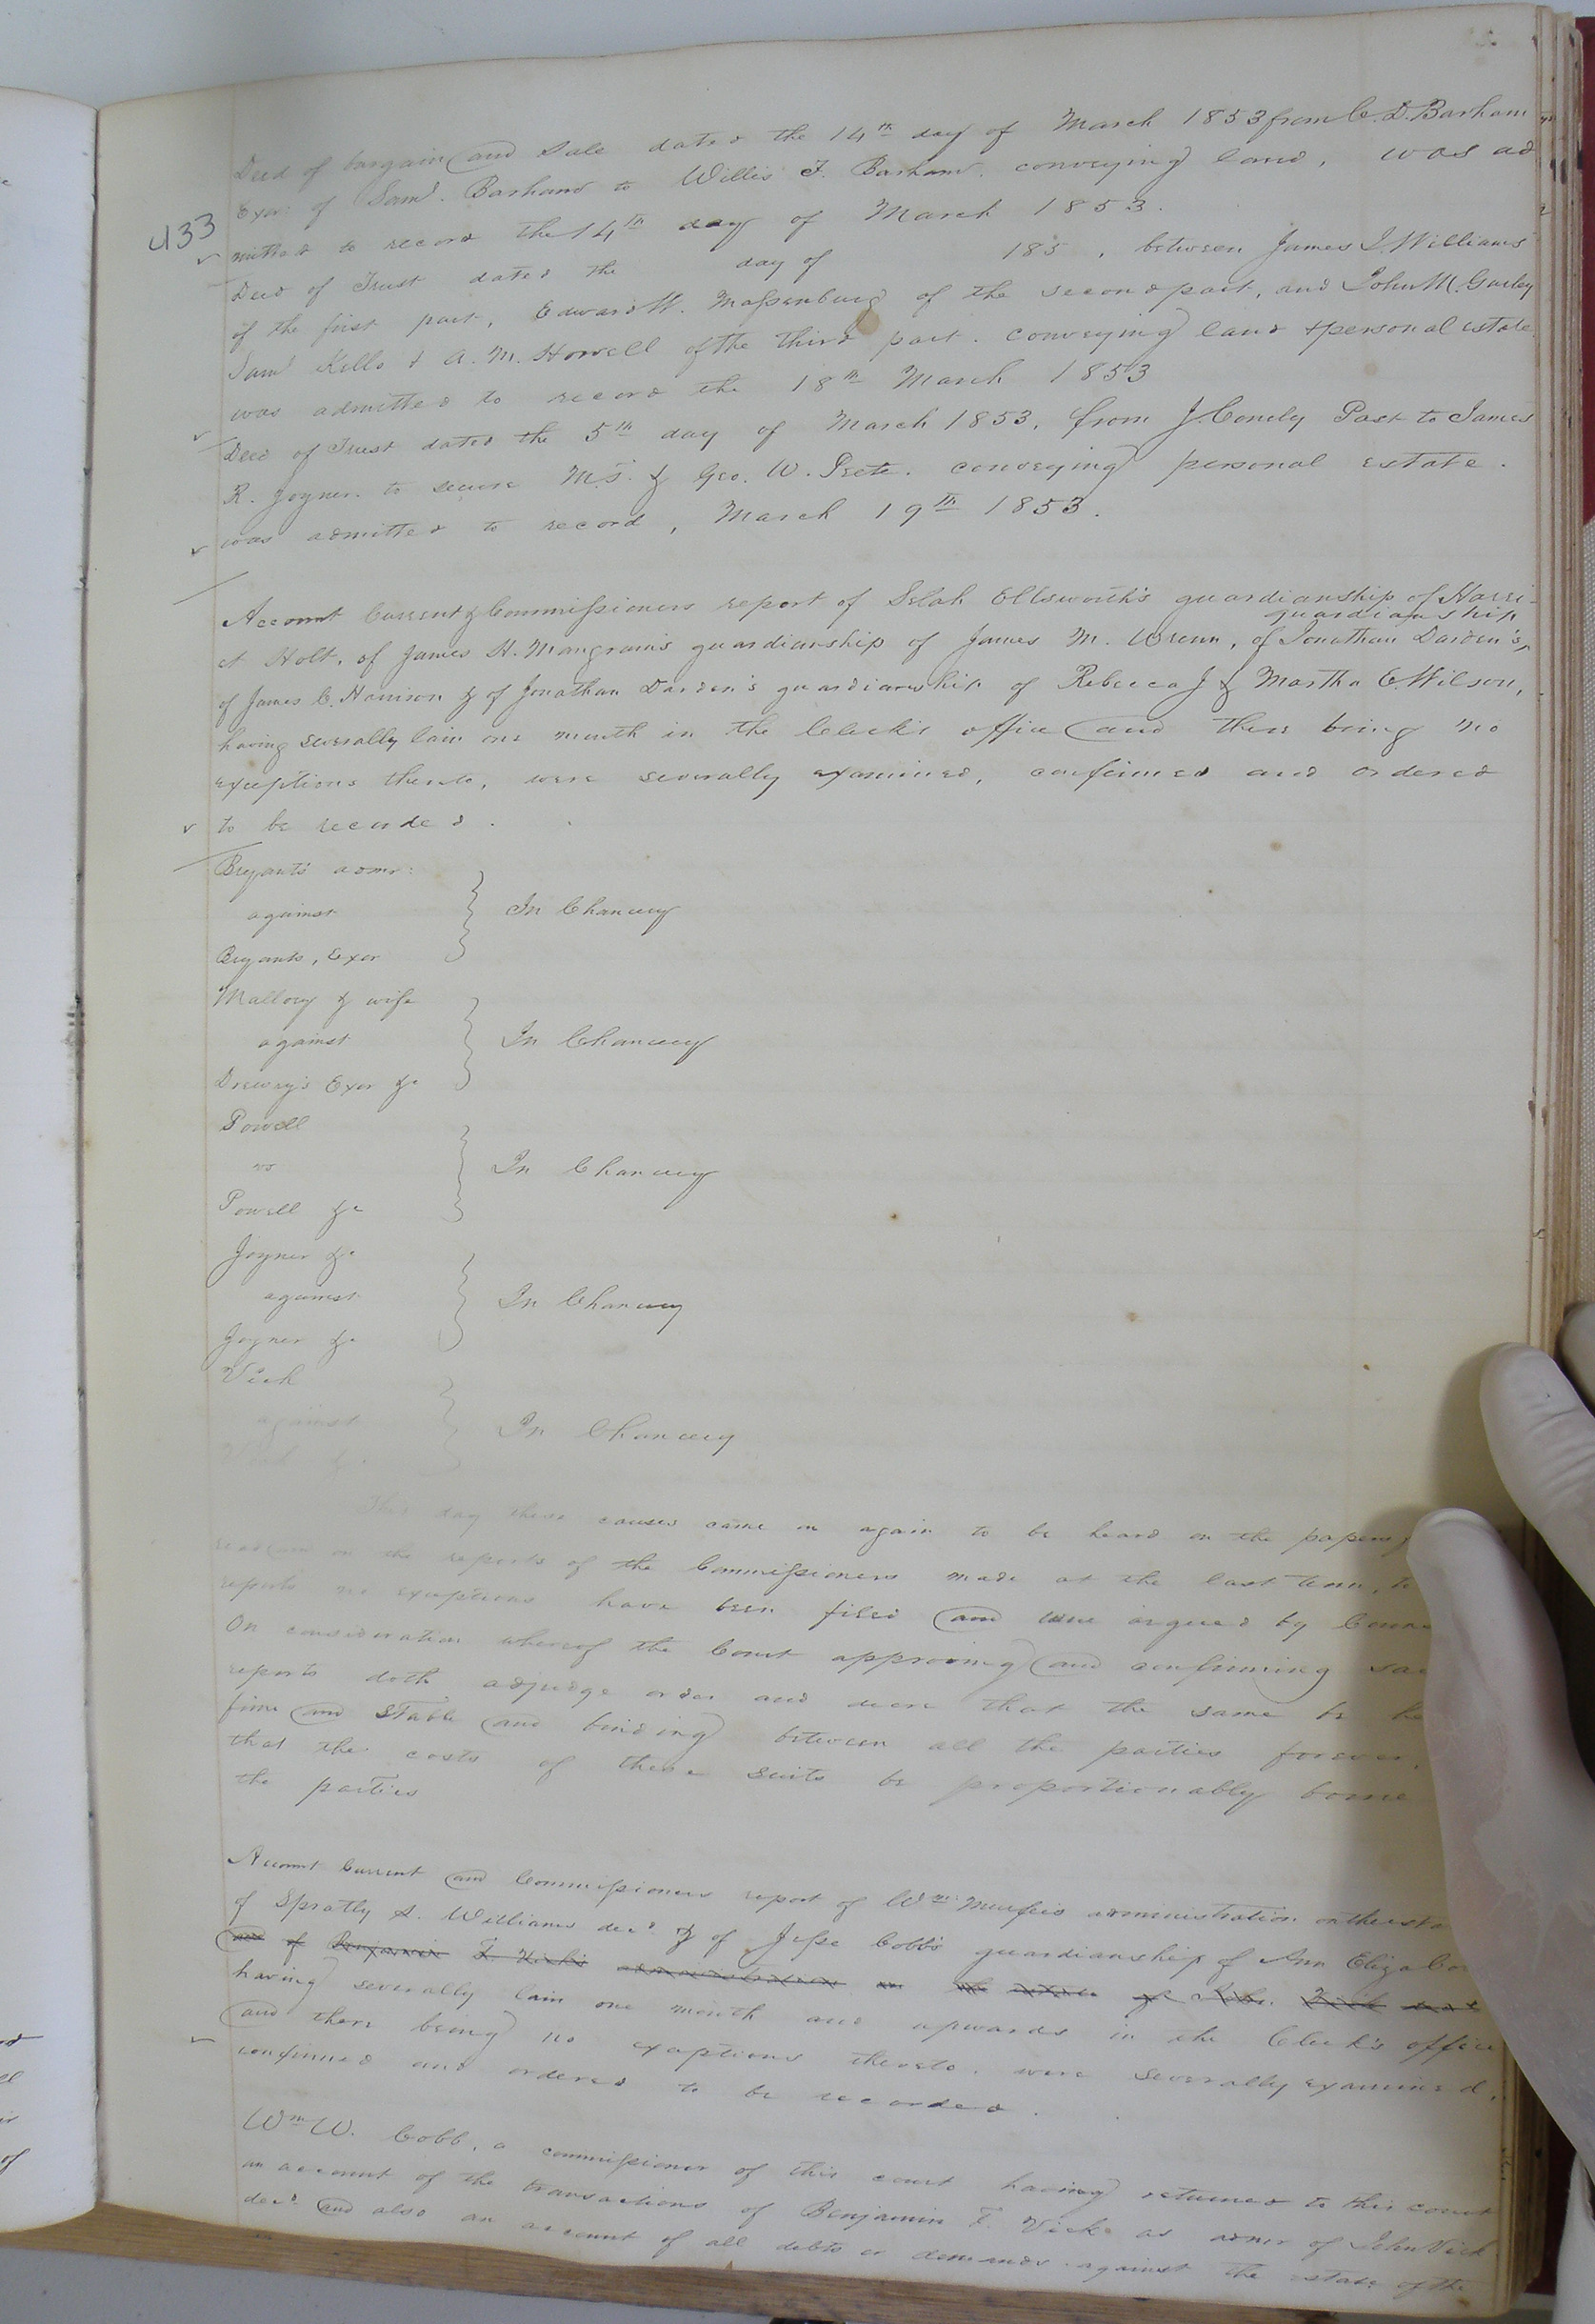 Deed of bargain and sale dated the 14th day of March 1853 from C. D. Barham
Exor: of Saml. Barham to Willis F. Barham, conveying land, was ad
433
mitted to record the 14th day of March 1853.
Deed of Trust dated the day of 185 , between James J. Williams
of the first part, Edward W. Massenburg of the second part, and John M. Gurley
Saml Kello & A. M. Howell of the third part. conveying land & personal estate
was admitted to record the 18th March 1853
Deed of Trust dated the 5th day of March 1853, from J. Conely Past to James
R. Joyner. to secure M. S. & Geo. W. Prete. conveying personal estate.
was admitted to record, March 19th 1853.
Account Current & Commissioners report of Selah Ellsworth's guardianship of Harri-
guardianship
et Holt, of James H. Mangram's guardianship of James M. Wrenn, of Jonathan Darden's,
of James C. Harrison & of Jonathan Darden's guardianship of Rebecca J & Martha E. Wilson,
having severally lain one month in the Clerk's office and there being no
exceptions thereto, were severally examined, confirmed and ordered
to be recorded.
Bryant's admr:
against In Chancery
Bryants, Exor
Mallory & wife
against In Chancery
Drewry's Exor &c
Powell
vs In Chancery
Powell &c
Joyner &c
against In Chancery
Joyner &c
Vick
against In Chancery
Vick &c
This day these causes came on again to be heard on the papers
on the reports of the Commissioners made at the last term, to
reports no exceptions have been filed and were argued by Coun
On consideration whereof the Court approving and confirming sai
reports doth adjudge order and decree that the same be he
firm and stable and binding between all the parties forever,
that the costs of these suits be proportionably borne
the parties
Account Current and Commissioners report of Wm Murfee's administration on the esta
of Spratly A. Williams decd & of Jesse Cobb's guardianship of Ann Eliza Co
and of Benjamin F. Vick's administration on the estate of John Vick decd
having severally lain one month and upwards in the Clerk's office
and there being no exceptions thereto. were severally examined,
confirmed and ordered to be recorded.
Wm W. Cobb, a commissioner of this court having returned to this court
an account of the transactions of Benjamin F. Vick as admr of John Vick
decd and also an account of all debts or demands against the estate of the